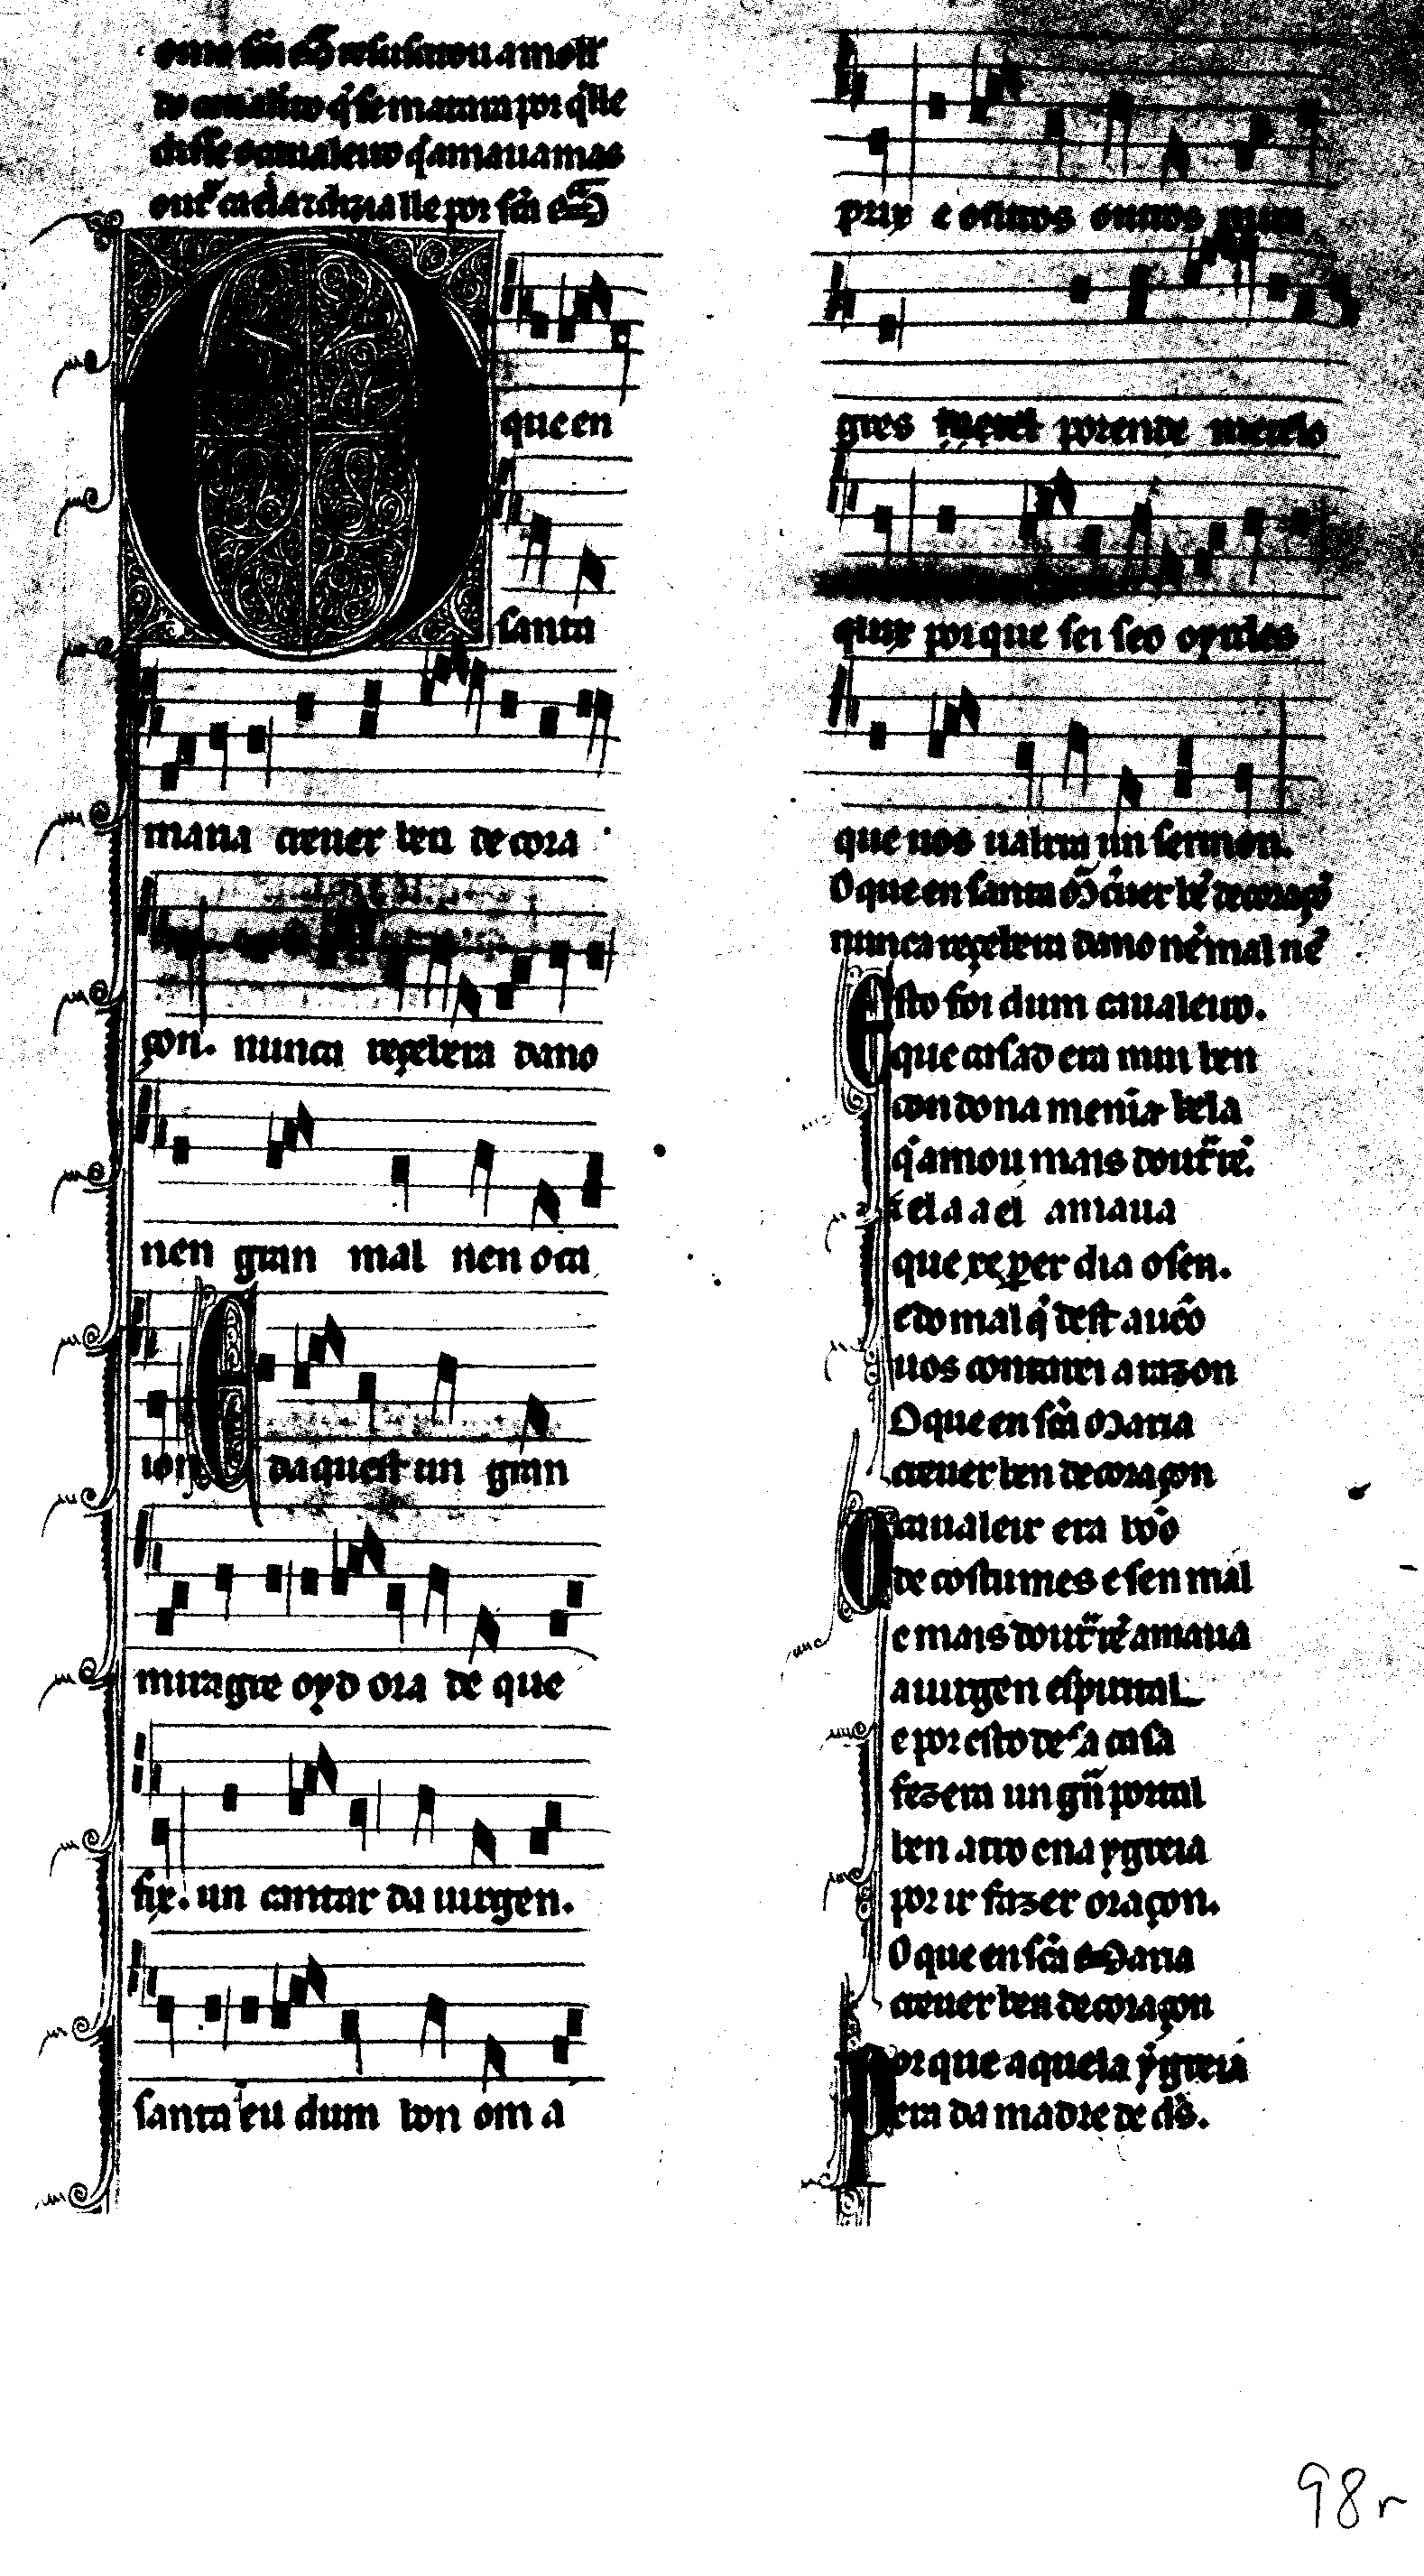 como scã m̃ resusçitou a moll
do caualeiro q̇ se matara por q̇lle
disse o caualeiro q̇ amaua mas
outr̃ ca ela z dizialle por scã m̃
O que en
santa
maria creuer ben de cora
çon. nunca reçebera dano
nen gran mal nen oca
ion E daquest un gran
miragre oyd ora de que
fix. un cantar da uirgen.
santa eu dum bon om a
prix e outros outros mira
gres porende metelo
quix porque sei seo oyrdes
que uos ualrra un sermon.
O que en santa m̃ c̃uer bẽ de coraçõ
nunca reçebera dano nẽ mal nẽ
Esto foi dum caualeiro.
que casad era mui ben
con dona meninã bela
q̇ amou mais doutr̃ rẽ.
e ela a el amaua
que xe perdia o sen.
e do mal q̇ dest auẽo
uos contarei a razon
O que en scã maria
creuer ben de coraçon
O caualeir era bõo
de costumes e sen mal
e mais doutr̃ rẽ amaua
a uirgen esperital
e por esto de sa casa
fezera un gñ portal
ben atro ena ygreia
por ir fazer oraçon.
O que en scã maria
creuer ben de coraçon
Porque aquela ygreia
era da madre de ds̃.
98r